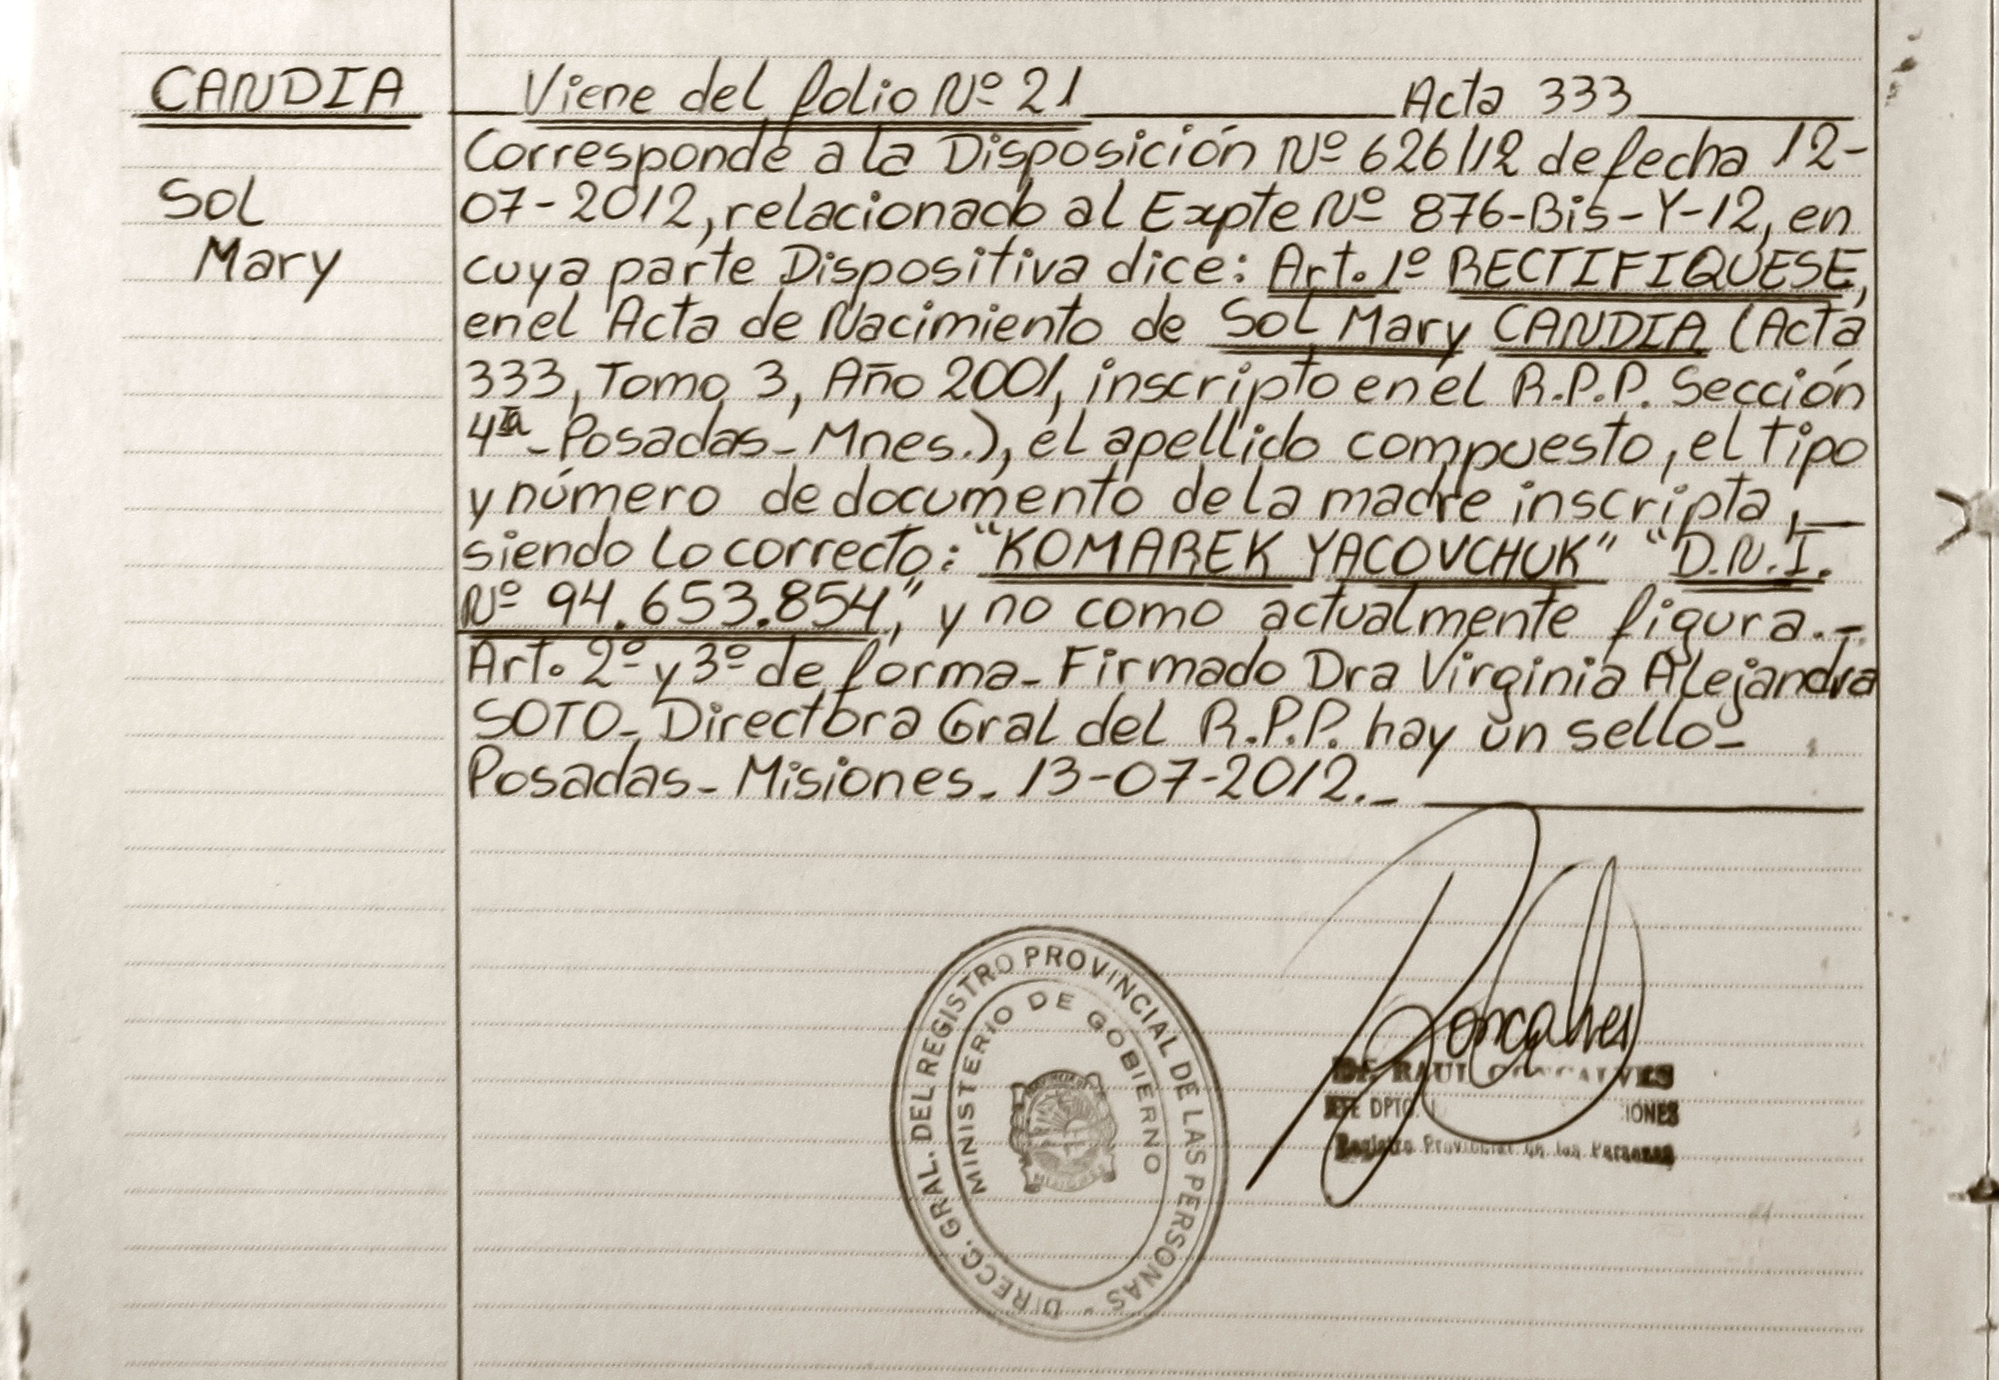 CANDIA
Sol
Mary
Viene del folio Nº 21 Acta 333
Corresponde a la Disposición Nº 626/12 de fecha 12-
07-2012, relacionado al Expte Nº 876-Bis-Y-12, en
cuya parte Dispositiva dice: Art. 1º RECTIFIQUESE,
en el Acta de Nacimiento de Sol Mary CANDIA (Acta
333, Tomo 3, Año 2001, inscripto en el R.P.P. Sección
4ta- Posadas- Mnes.), el apellido compuesto, el tipo
y número de documento de la madre inscripta,-
siendo lo correcto: "KOMAREK YACOVCHUK" "D.N.I.
Nº 94.653.854", y no como actualmente figura.-
Art. 2º y 3º de forma- Firmado Dra Virginia Alejandra
SOTO- Directora Gral del R.P.P. hay un sello-
Posadas- Misiones. 13-07-2012.-
DIRECC. GRAL. DEL REGISTRO PROVINCIAL DE LAS PERSONAS
MINISTERIO DE GOBIERNO
MISIONES
Goncalves
RAUL GONCALVES
JEFE DPTO.
Registro Provincial de las Personas